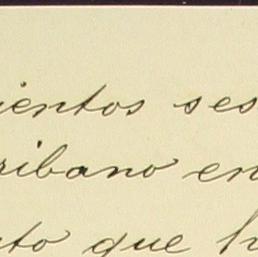 ientos ses
ribano en
to que h